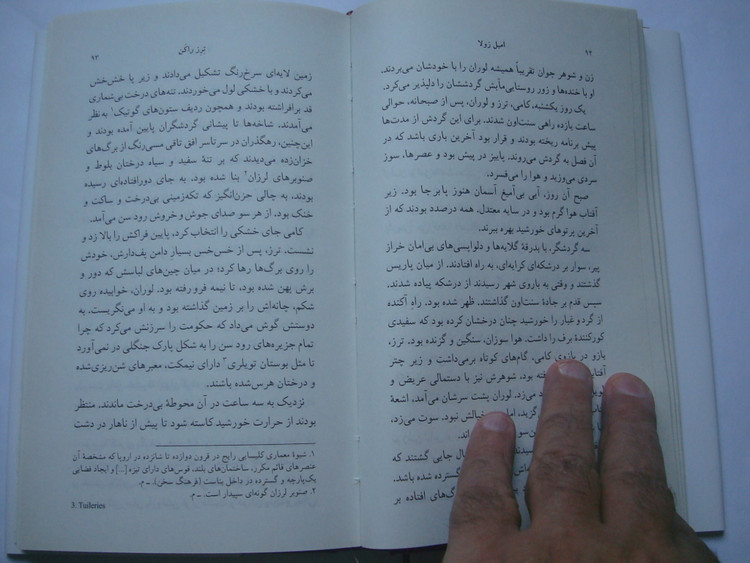 ۹۲
امیل زولا
زن و شوهر جوان تقریباً همیشه لوران را با خودشان می‌بردند.
او با خنده‌ها و زور روستایی‌مآبش گردششان را دلپذیر می‌کرد.
یک روز یکشنبه، کامی، ترز و لوران، پس از صبحانه، حوالی
ساعت یازده راهی سنت‌اون شدند. برای این گردش از مدت‌ها
پیش برنامه ریخته بودند و قرار بود آخرین باری باشد که در
آن فصل به گردش می‌روند. پاییز در پیش بود و عصرها، سوز
سردی می‌وزید و هوا را می‌فسرد.
صبح آن روز، آبی بی‌آمیغ آسمان هنوز پابرجا بود. زیر
آفتاب هوا گرم بود و در سایه معتدل. همه درصدد بودند که از
آخرین پرتوهای خورشید بهره ببرند.
سه گردشگر، با بدرقهٔ گلایه‌ها و دلواپسی‌های بی‌امان خراز
پیر، سوار بر درشکه‌ای کرایه‌ای، به راه افتادند. از میان پاریس
گذشتند و وقتی به باروی شهر رسیدند از درشکه پیاده شدند.
سپس قدم بر جادهٔ سنت‌اون گذاشتند. ظهر شده بود. راهِ آکنده
از گرد و غبار را خورشید چنان درخشان کرده بود که سفیدی
کورکنندهٔ برف را داشت. هوا سوزان، سنگین و گزنده بود. ترز،
بازو در بازوی کامی، گام‌های کوتاه برمی‌داشت و زیر چتر
فته بود. شوهرش نیز با دستمالی عریض و
می‌زد. لوران پشت سرشان می‌آمد، اشعهٔ
گزید، اما خیالش نبود. سوت می‌زد،
جایی گشتند که
گسترده شده باشد.
برگ‌های افتاده بر
ترز راکن
۹۳
زمین لایه‌ای سرخ‌رنگ تشکیل می‌دادند و زیر پا خش‌خش
می‌کردند و با خشکی لول می‌خوردند. تنه‌های درخت بی‌شماری
قد برافراشته بودند و همچون ردیف ستون‌های گوتیک۱ به‌نظر
می‌آمدند. شاخه‌ها تا پیشانی گردشگران پایین آمده بودند و
این‌چنین، رهگذران در سرتاسر افق تاقی مسی‌رنگ از برگ‌های
خزان‌زده می‌دیدند که بر تنهٔ سفید و سیاه درختان بلوط و
صنوبرهای لرزان۲ بنا شده بود. به جای دورافتاده‌ای رسیده
بودند، به چالی حزن‌انگیز که تکه‌زمینی بی‌درخت و ساکت و
خنک بود. از هر سو صدای جوش و خروش رود سن می‌آمد.
کامی جای خشکی را انتخاب کرد، پایین فراکش را بالا زد و
نشست. ترز، پس از خس‌خس بسیارِ دامن پف‌دارش، خودش
را روی برگ‌ها رها کرد؛ در میان چین‌های لباسش که دور و
برش پهن شده بود، تا نیمه فرو رفته بود. لوران، خوابیده روی
شکم، چانه‌اش را بر زمین گذاشته بود و به او می‌نگریست. به
دوستش گوش می‌داد که حکومت را سرزنش می‌کرد که چرا
تمام جزیره‌های رود سن را به شکل پارک جنگلی در نمی‌آورد
تا مثل بوستان تویلری۳ دارای نیمکت، معبرهای شن‌ریزی‌شده
و درختان هرس‌شده باشند.
نزدیک به سه ساعت در آن محوطهٔ بی‌درخت ماندند. منتظر
بودند از حرارت خورشید کاسته شود تا پیش از ناهار در دشت
۱. شیوهٔ معماری کلیسایی رایج در قرون دوازده تا شانزده در اروپا که مشخصهٔ آن
عنصرهای قائم مکرر، ساختمان‌های بلند، قوس‌های دارای تیزه [...] و ایجاد فضایی
یک‌پارچه و گسترده در داخل بناست (فرهنگ سخن). ـ م.
۲. صنوبر لرزان گونه‌ای سپیدار است. ـ م.
3. Tuileries